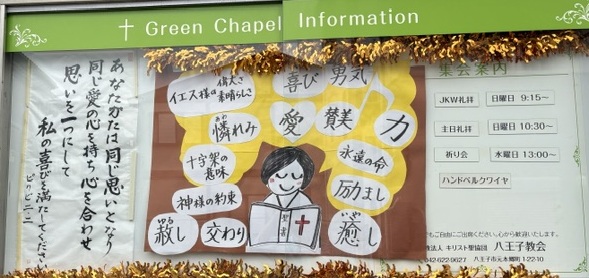 ✝ Green Chapel Information
あなたがたは同じ思いとなり
同じ愛の心を持ち心を合わせ
思いを一つにして
私の喜びを満たしてください
ピリピ二・二
イエス様の偉大さ素晴らしさ
喜び
勇気
憐れみ
あわ
愛
賛美
力
十字架の意味
永遠の命
神様の約束
励まし
はげ
赦し
ゆる
交わり
聖書
癒し
いや
集会案内
JKW礼拝 日曜日 9:15～
主日礼拝 日曜日 10:30～
祈り会 水曜日 13:00～
ハンドベルクワイヤ
でもご自由にご出席ください。心から歓迎いたします。
キリスト聖協団 八王子教会
042-622-9627 八王子市元本郷町1-22-10